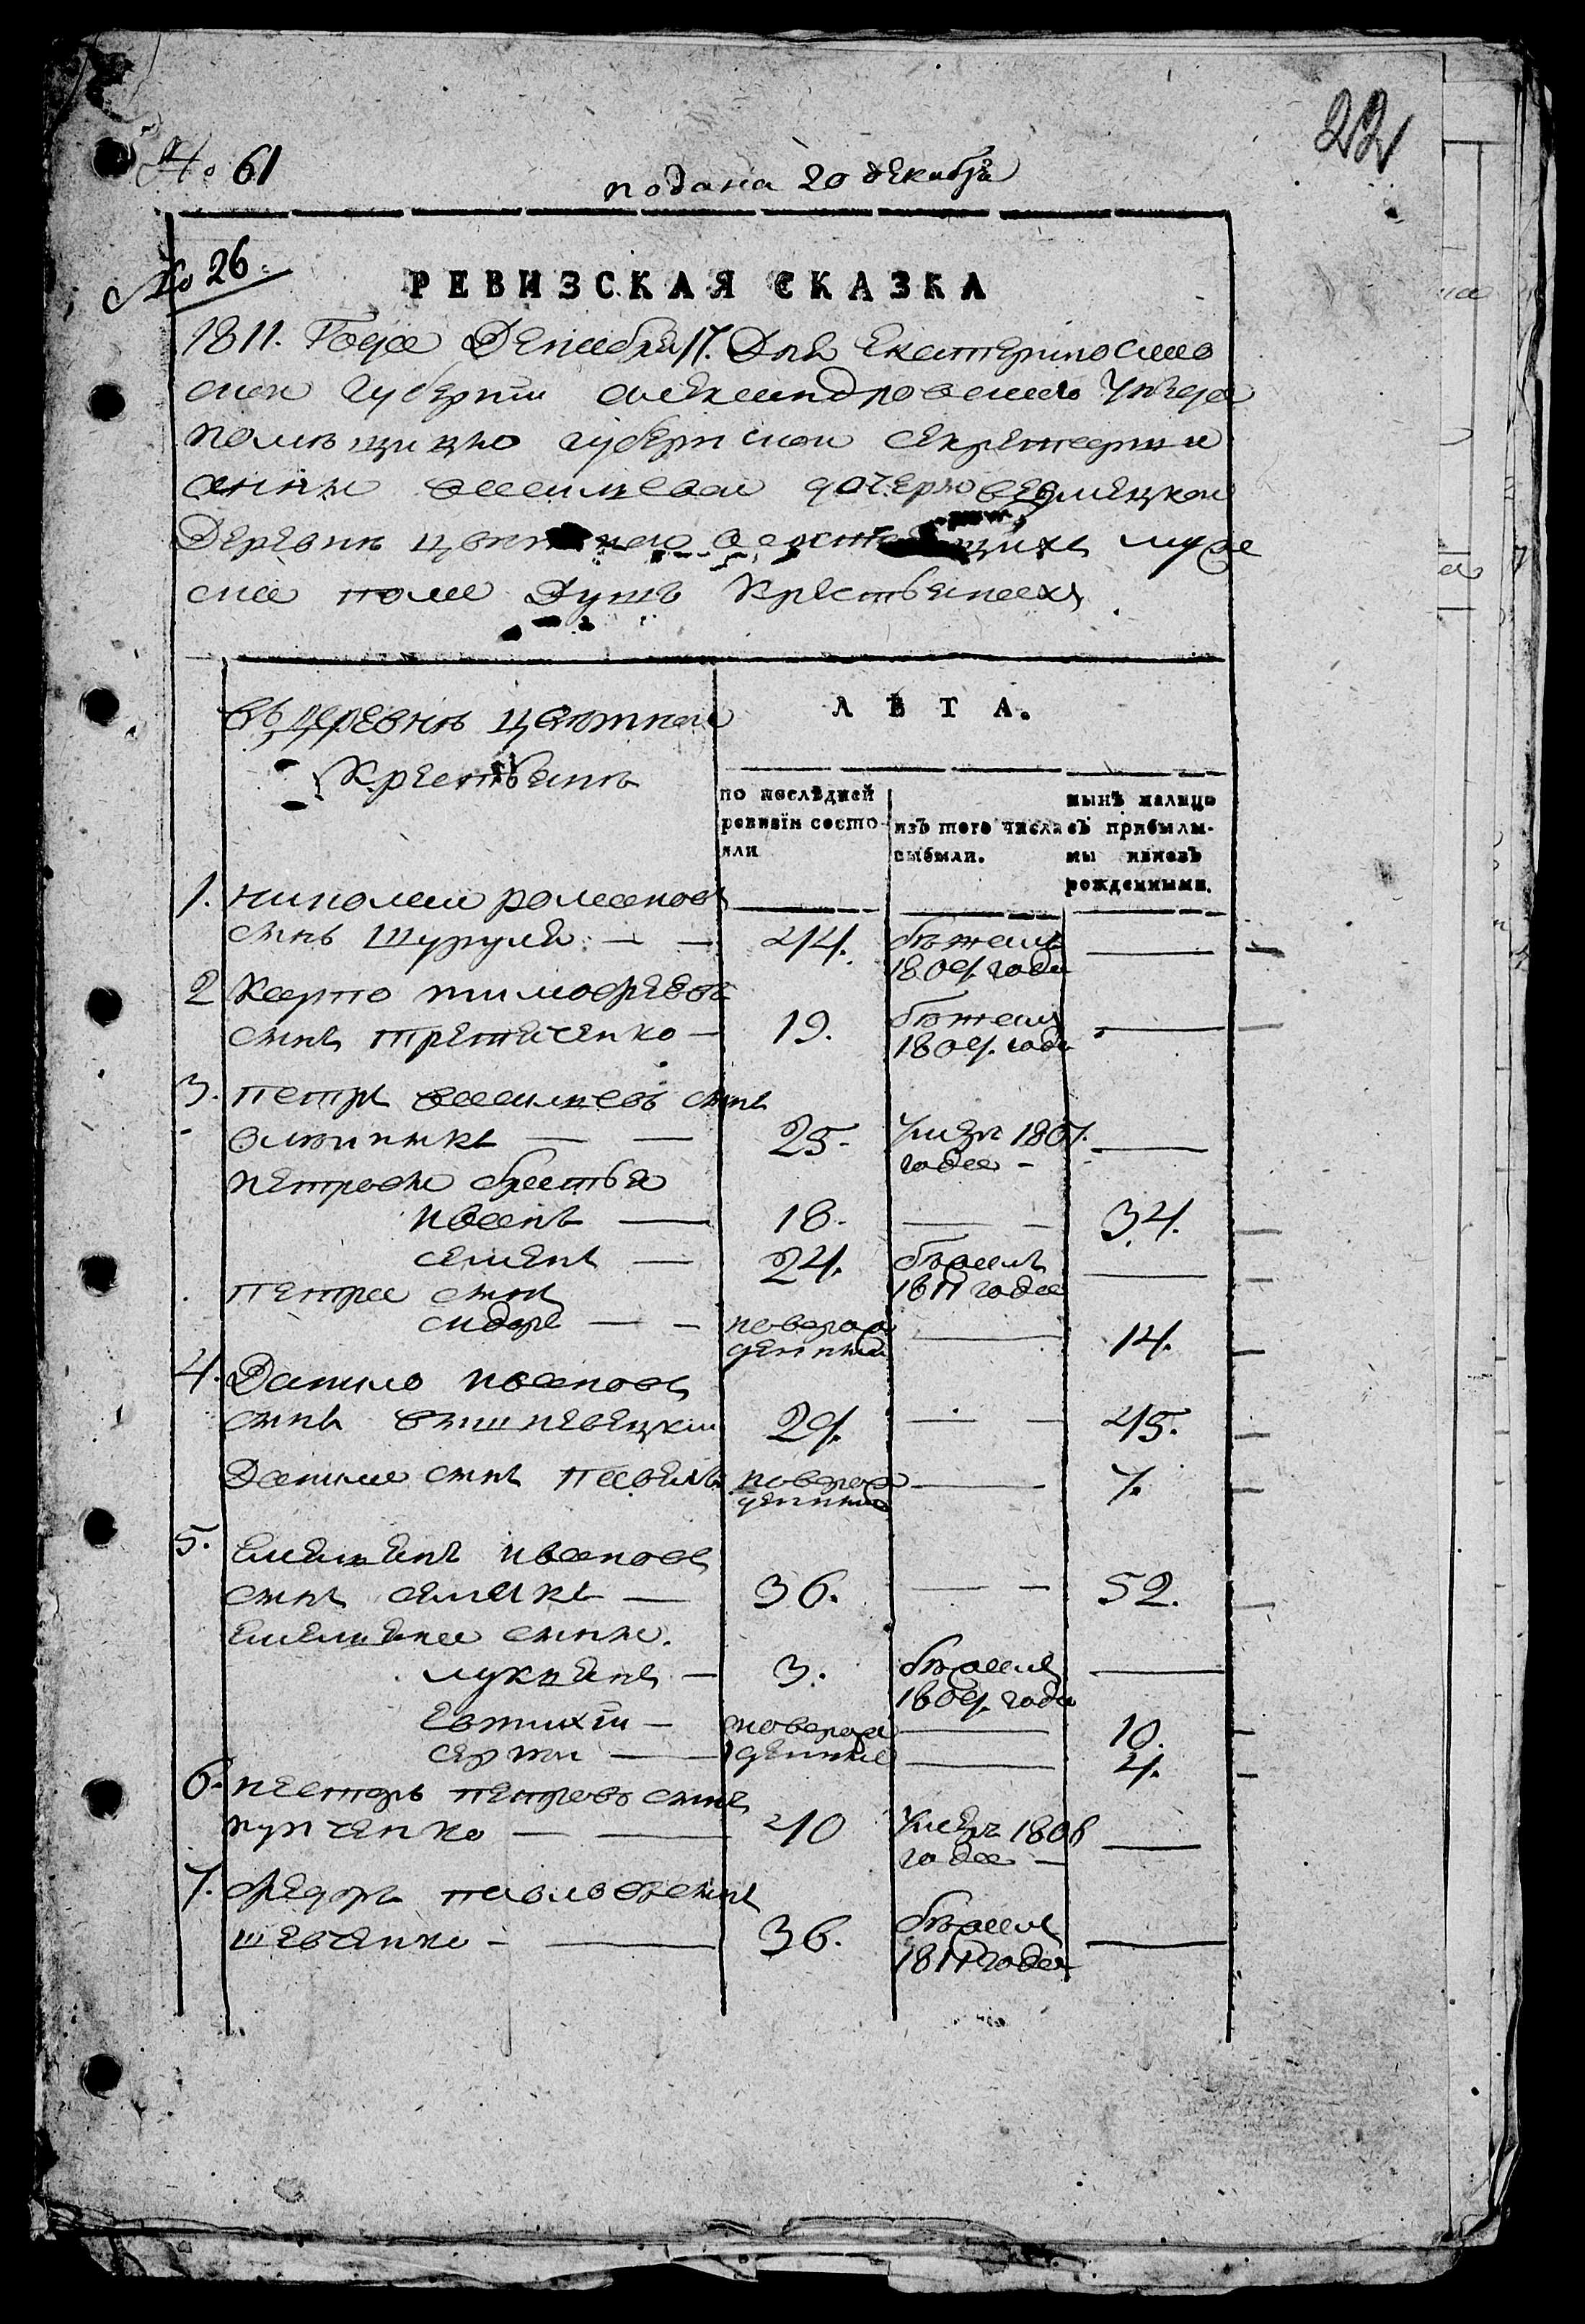 22
№ 61
подана 20 декабря
№ 26.
РЕВИЗСКАЯ СКАЗКА
1811. Года Декабря 17. Дня Екатеринослав
ской Губернии Александровскаго Уезда
помещицы губернской секретарши
Анны Васильевой дочери
Деревни муже
ска пола Душъ Крестьянахъ.
въ деревне Цветной
Крестьянъ
ЛѢТА.
по послѣдней
ревизіи состо-
яли
изъ того числа
выбыли.
нынѣ налицо
съ прибылы-
мы и вновь
рожденными.
1. Николай романовъ
сынъ Шуруля — — 44. бежалъ —
1804. года
2 Карпо тимофеевъ
сынъ третяченко — 19. бежалъ —
1804. года
3. петръ васильевъ сынъ
— — 25. умеръ 1807. —
года —
петровы братья
иванъ — 18. — — 34.
семенъ — 24. бежалъ —
1811 года
петра сынъ
сидоръ — — новорож — 14.
денный
4. Данило ивановъ
сынъ вишневецкий 29. — — 45.
Данила сынъ павелъ новорож — 7.
денный
5. емельянъ ивановъ
сынъ семакъ — 36. — — 52.
емельяна сыны.
лукьянъ — 3. бежалъ —
1804. года
евтихий — новорож — 10.
сергий — денные — 4.
6. нестеръ петровъ сынъ
— — 40 умеръ 1808 —
года —
7. федоръ павловъ сынъ
шевченко — — 36. бежалъ —
1811 года